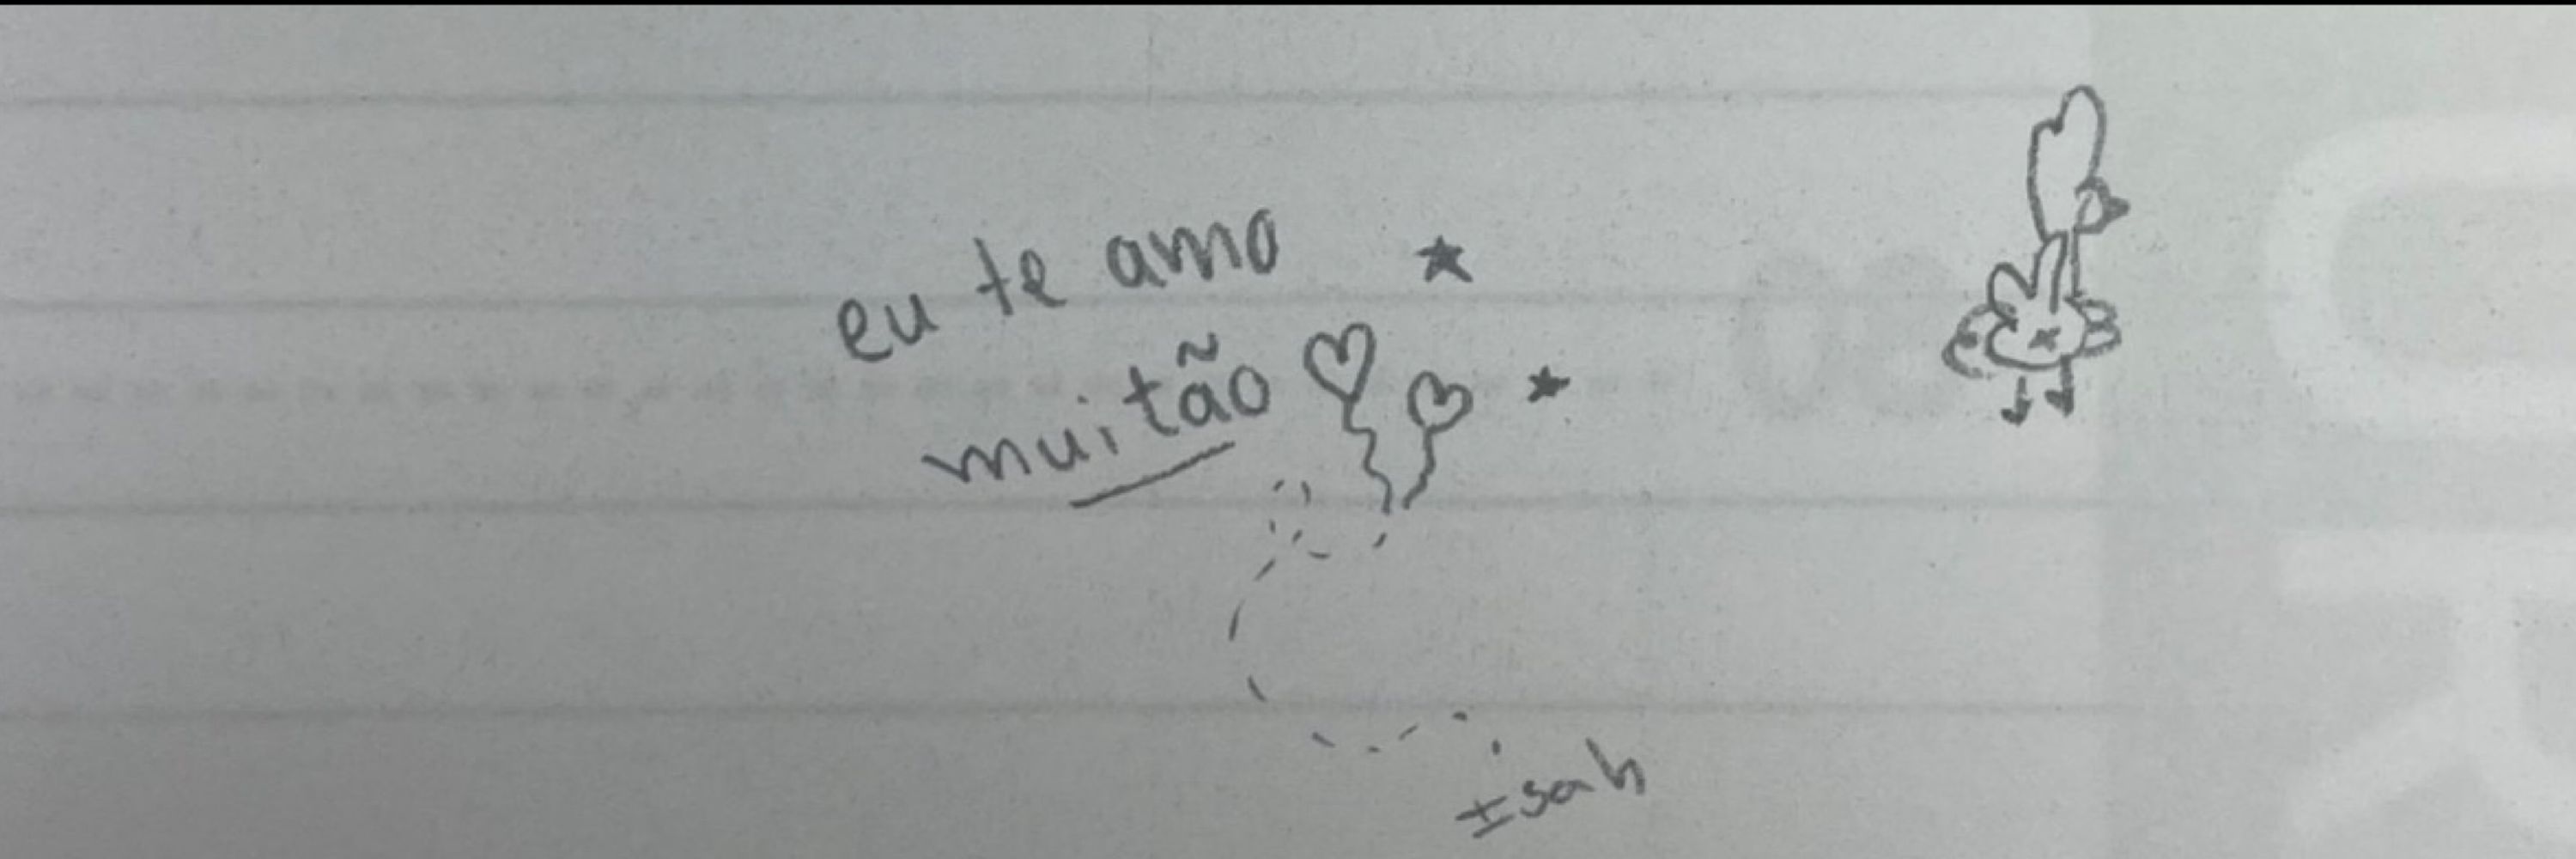 eu te amo
muitão
Isah